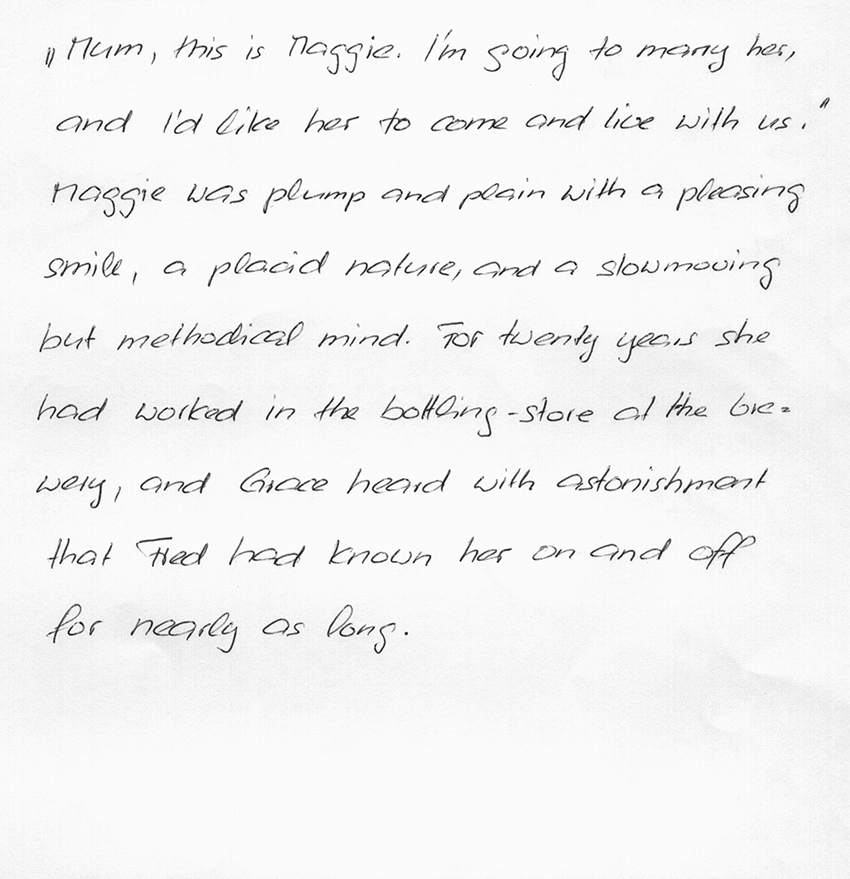 „Mum, this is Maggie. I'm going to marry her,
and I'd like her to come and live with us."
Maggie was plump and plain with a pleasing
smile, a placid nature, and a slowmoving
but methodical mind. For twenty years she
had worked in the bottling-store at the bre=
wery, and Grace heard with astonishment
that Fred had known her on and off
for nearly as long.